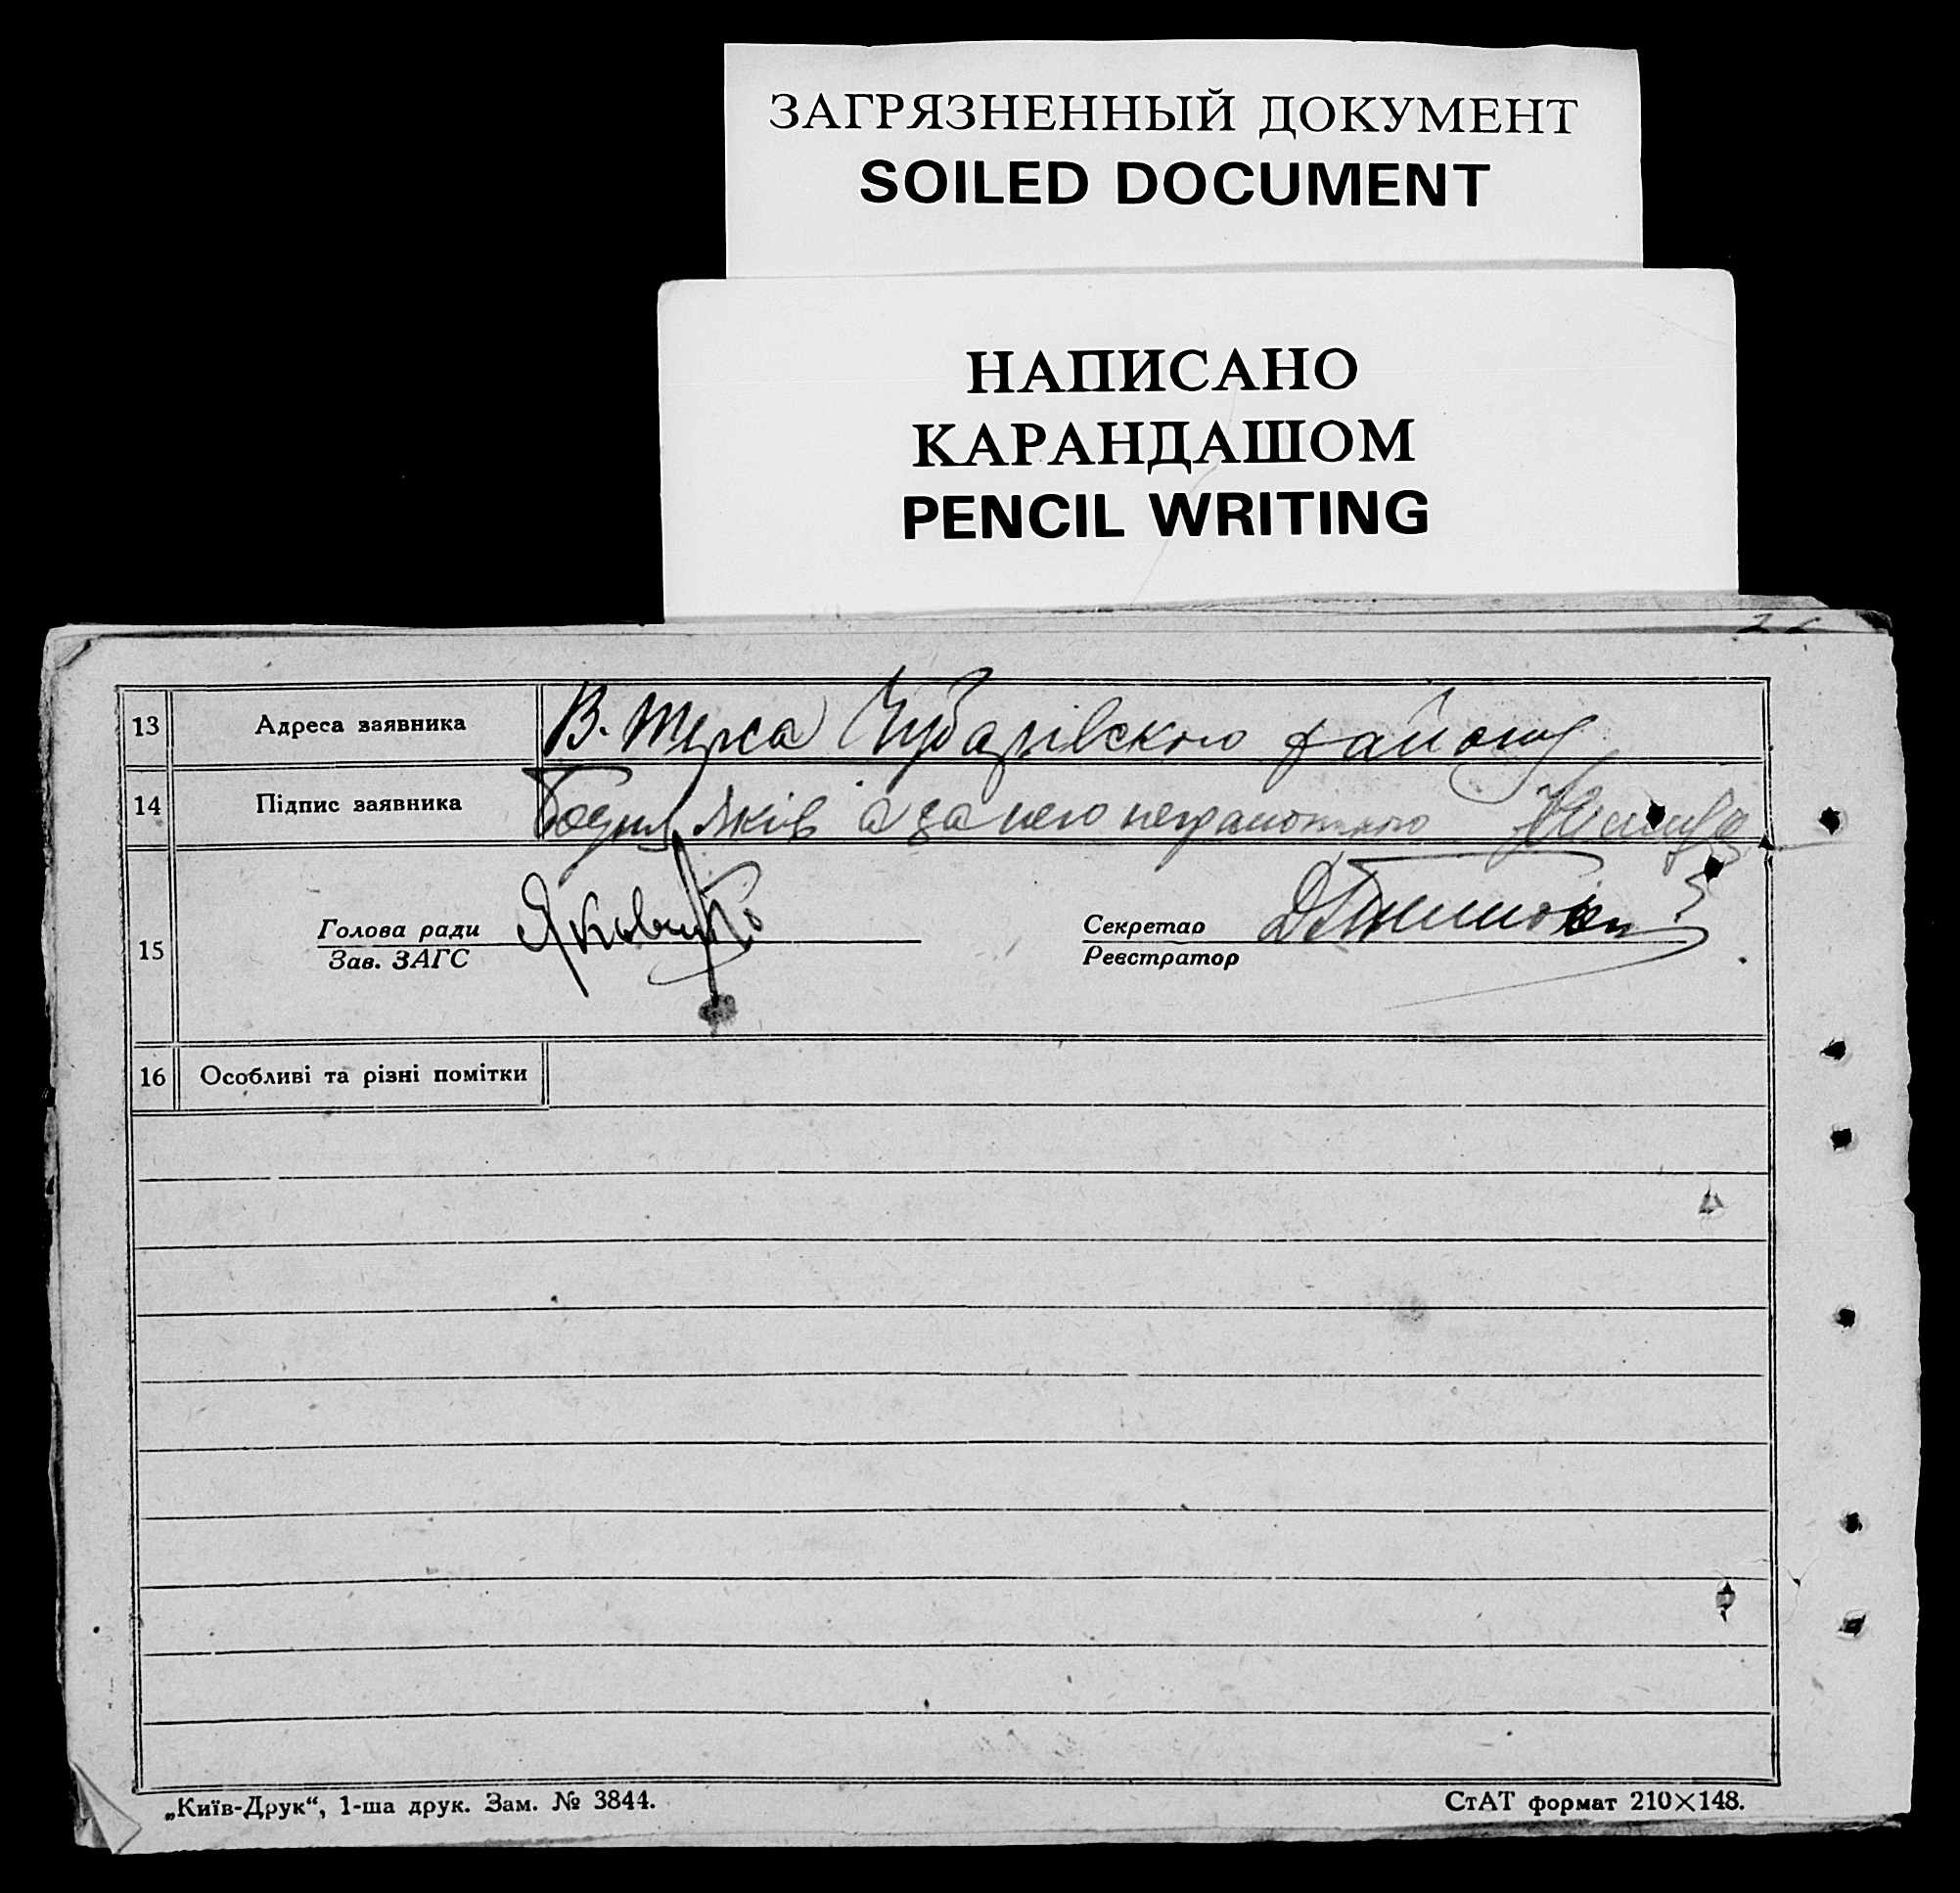 ЗАГРЯЗНЕННЫЙ ДОКУМЕНТ
SOILED DOCUMENT
НАПИСАНО
КАРАНДАШОМ
PENCIL WRITING
13 Адреса заявника В. Терса Чубарівского району
14 Підпис заявника Яків а за него неграмотного
15 Голова ради Секретар
Зав. ЗАГС Реєстратор
16 Особливі та різні помітки
„Київ-Друк“, 1-ша друк. Зам. № 3844. СтАТ формат 210×148.